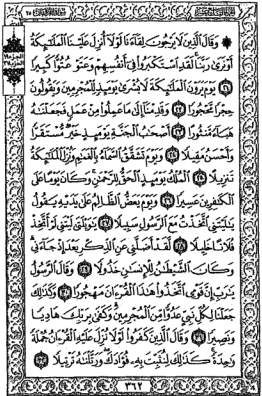 ۞ وَقَالَ ٱلَّذِينَ لَا يَرْجُونَ لِقَآءَنَا لَوْلَآ أُنزِلَ عَلَيْنَا ٱلْمَلَٰٓئِكَةُ
أَوْ نَرَىٰ رَبَّنَا لَقَدِ ٱسْتَكْبَرُوا۟ فِىٓ أَنفُسِهِمْ وَعَتَوْ عُتُوًّا كَبِيرًا
٢١ يَوْمَ يَرَوْنَ ٱلْمَلَٰٓئِكَةَ لَا بُشْرَىٰ يَوْمَئِذٍ لِّلْمُجْرِمِينَ وَيَقُولُونَ
حِجْرًا مَّحْجُورًا ٢٢ وَقَدِمْنَآ إِلَىٰ مَا عَمِلُوا۟ مِنْ عَمَلٍ فَجَعَلْنَٰهُ
هَبَآءً مَّنثُورًا ٢٣ أَصْحَٰبُ ٱلْجَنَّةِ يَوْمَئِذٍ خَيْرٌ مُّسْتَقَرًّا
وَأَحْسَنُ مَقِيلًا ٢٤ وَيَوْمَ تَشَقَّقُ ٱلسَّمَآءُ بِٱلْغَمَٰمِ وَنُزِّلَ ٱلْمَلَٰٓئِكَةُ
تَنزِيلًا ٢٥ ٱلْمُلْكُ يَوْمَئِذٍ ٱلْحَقُّ لِلرَّحْمَٰنِ وَكَانَ يَوْمًا عَلَى
ٱلْكَٰفِرِينَ عَسِيرًا ٢٦ وَيَوْمَ يَعَضُّ ٱلظَّالِمُ عَلَىٰ يَدَيْهِ يَقُولُ
يَٰلَيْتَنِى ٱتَّخَذْتُ مَعَ ٱلرَّسُولِ سَبِيلًا ٢٧ يَٰوَيْلَتَىٰ لَيْتَنِى لَمْ أَتَّخِذْ
فُلَانًا خَلِيلًا ٢٨ لَّقَدْ أَضَلَّنِى عَنِ ٱلذِّكْرِ بَعْدَ إِذْ جَآءَنِى
وَكَانَ ٱلشَّيْطَٰنُ لِلْإِنسَٰنِ خَذُولًا ٢٩ وَقَالَ ٱلرَّسُولُ
يَٰرَبِّ إِنَّ قَوْمِى ٱتَّخَذُوا۟ هَٰذَا ٱلْقُرْءَانَ مَهْجُورًا ٣٠ وَكَذَٰلِكَ
جَعَلْنَا لِكُلِّ نَبِىٍّ عَدُوًّا مِّنَ ٱلْمُجْرِمِينَ وَكَفَىٰ بِرَبِّكَ هَادِيًا
وَنَصِيرًا ٣١ وَقَالَ ٱلَّذِينَ كَفَرُوا۟ لَوْلَا نُزِّلَ عَلَيْهِ ٱلْقُرْءَانُ جُمْلَةً
وَٰحِدَةً كَذَٰلِكَ لِنُثَبِّتَ بِهِۦ فُؤَادَكَ وَرَتَّلْنَٰهُ تَرْتِيلًا ٣٢
٣٦٢